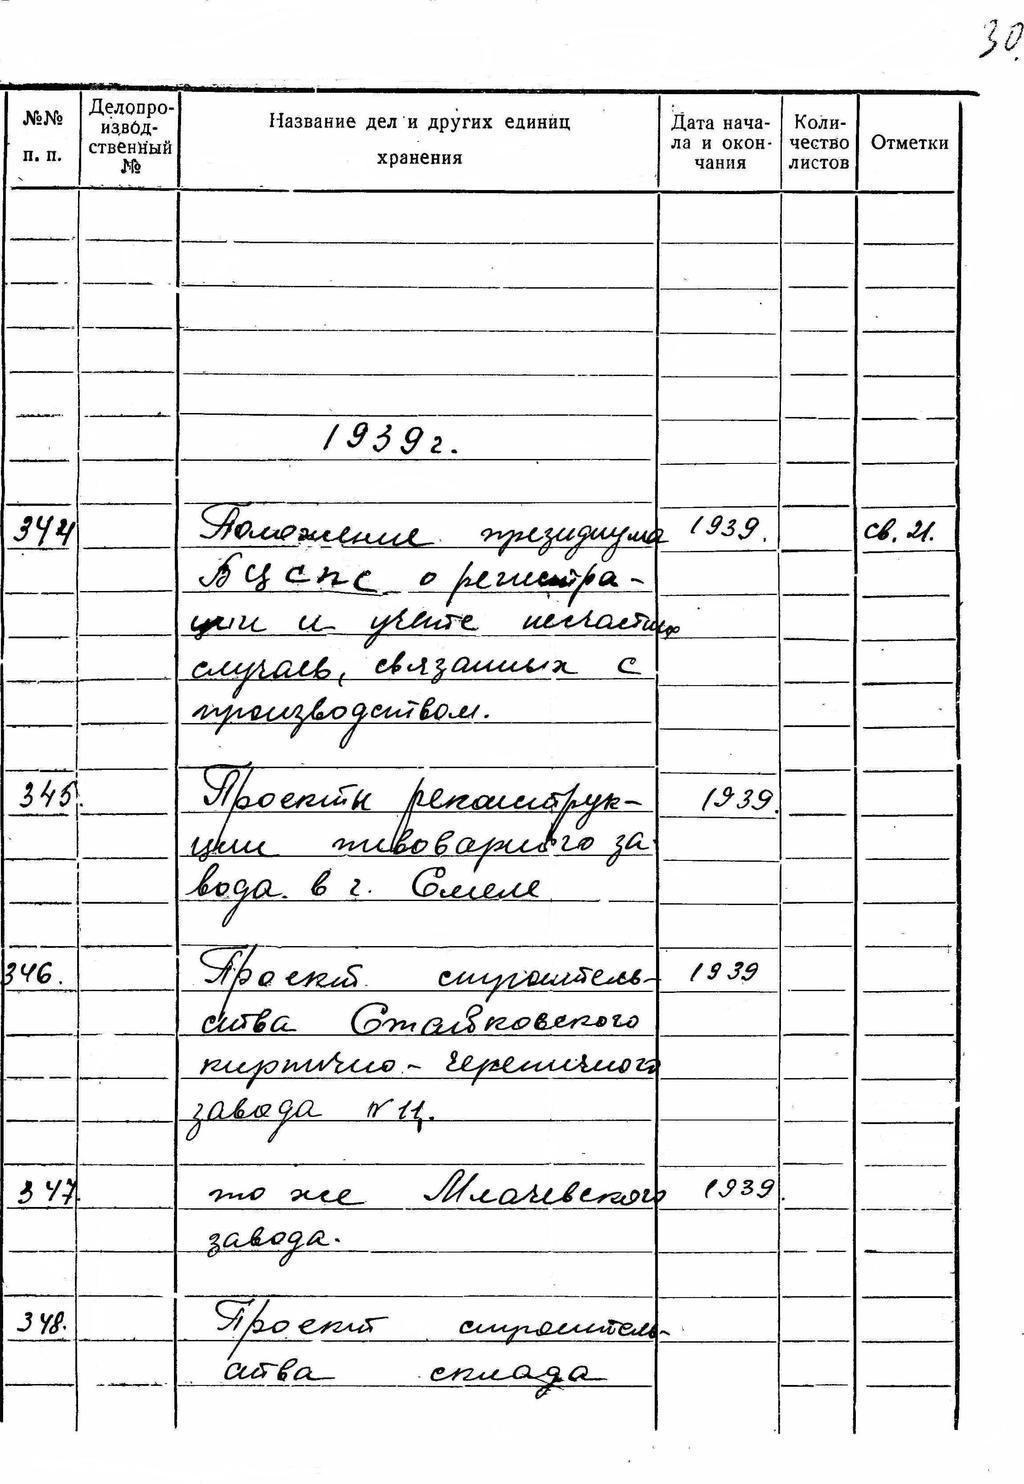 30.
№№ п. п. Делопроизводственный № Название дел и других единиц хранения Дата начала и окончания Количество листов Отметки
1939г.
344 Положение президиума 1939. св. 21.
БЦСПС о регистра-
ции и учете несчастных
случаев, связанных с
производством.
345. Проекты реконструк- 1939.
ции пивоварного за-
вода в г. Смеле
346. Проект строитель- 1939
ства Стайковского
кирпично-черепичного
завода
347. то же Млачевского 1939.
завода.
348. Проект строитель-
ства склада